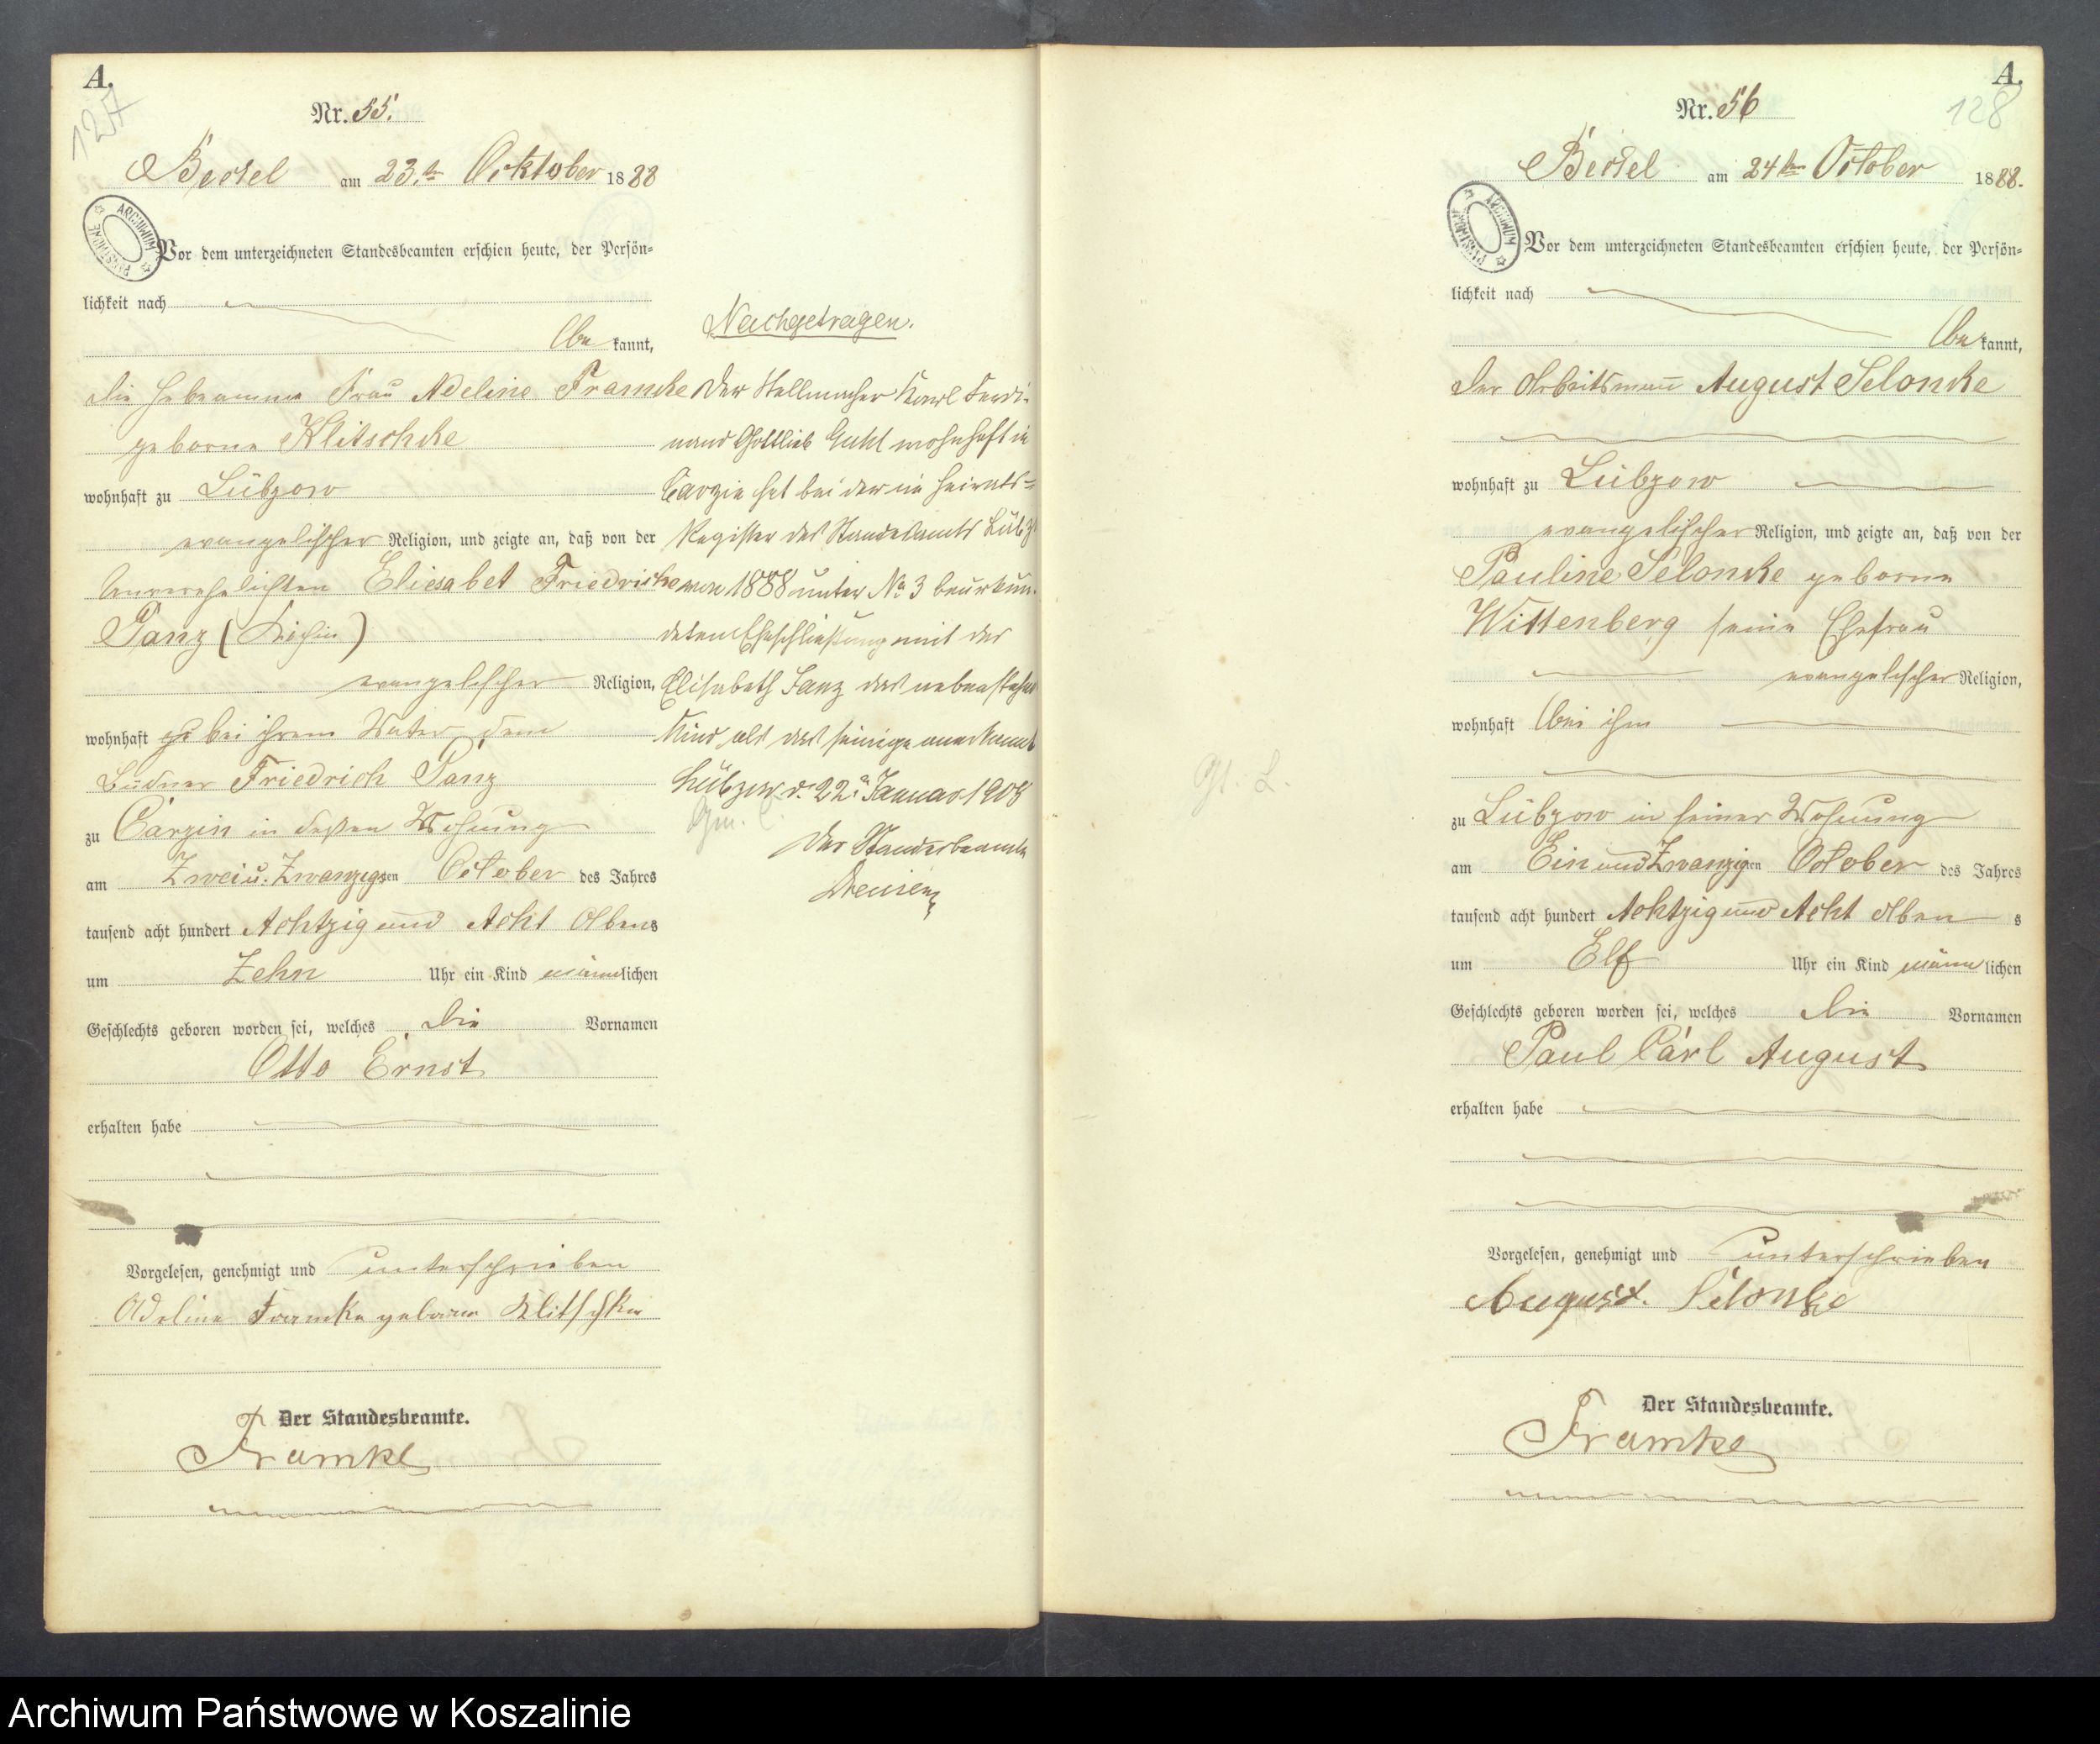 A.
127
Nr. 55.
Beckel am 23.ten October 1888
ARCHIWUM PAŃSTWOWE
Vor dem unterzeichneten Standesbeamten erschien heute, der Persön-
lichkeit nach
be kannt,
die Hebeamme Frau Adeline Framcke
geborne Klitschcke
wohnhaft zu Lübzow
evangelischer Religion, und zeigte an, daß von der
unverehelichten Eliesabet Friedricke
Panz (Köchin)
evangelischer Religion,
wohnhaft bei ihrem Vater dem
Büdner Friedrich Panz
zu Carzin in deßen Wohnung
am Zwei u. Zwanzigsten October des Jahres
tausend acht hundert Achtzig und Acht Abens
um Zehn Uhr ein Kind männlichen
Geschlechts geboren worden sei, welches die Vornamen
Otto Ernst
erhalten habe
Vorgelesen, genehmigt und unterschrieben
Adeline Framke geborne Klitschke
Der Standesbeamte.
Framke
Nachgetragen.
Der Stellmacher Karl Ferdi-
nand Gottlieb Guhl wohnhaft in
Carzin hat bei der im Heirats-
Register des Standesamts Lübz
von 1888 unter No 3 beurkun-
deten Eheschließung mit der
Elisabeth Panz das nebenstehend
Kind als das seinige anerkannt
Lübzow d. 22. Januar 1908
Der Standesbeamte
A.
128
Nr. 56
Beckel am 24ten October 1888.
ARCHIWUM PAŃSTWOWE
Vor dem unterzeichneten Standesbeamten erschien heute, der Persön-
lichkeit nach
be kannt,
der Arbeitsmann August Seloncke
wohnhaft zu Lübzow
evangelischer Religion, und zeigte an, daß von der
Pauline Seloncke geborne
Wittenberg seine Ehefrau
evangelischer Religion,
wohnhaft bei ihm
zu Lübzow in seiner Wohnung
am Ein und Zwanzigten October des Jahres
tausend acht hundert Achtzig und Acht Aben s
um Elf Uhr ein Kind männ lichen
Geschlechts geboren worden sei, welches die Vornamen
Paul Carl August
erhalten habe
Vorgelesen, genehmigt und unterschrieben
August. Selonke
Der Standesbeamte.
Framke
Archiwum Państwowe w Koszalinie